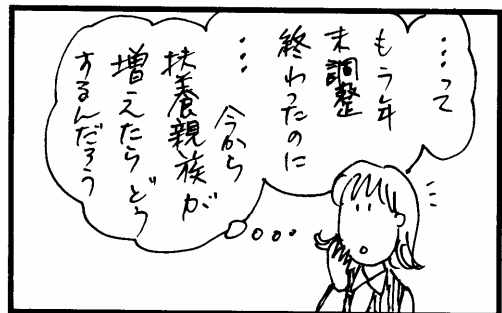 …って
もう年
末調整
終わったのに
…
今から
扶養親族が
増えたらどう
するんだろう